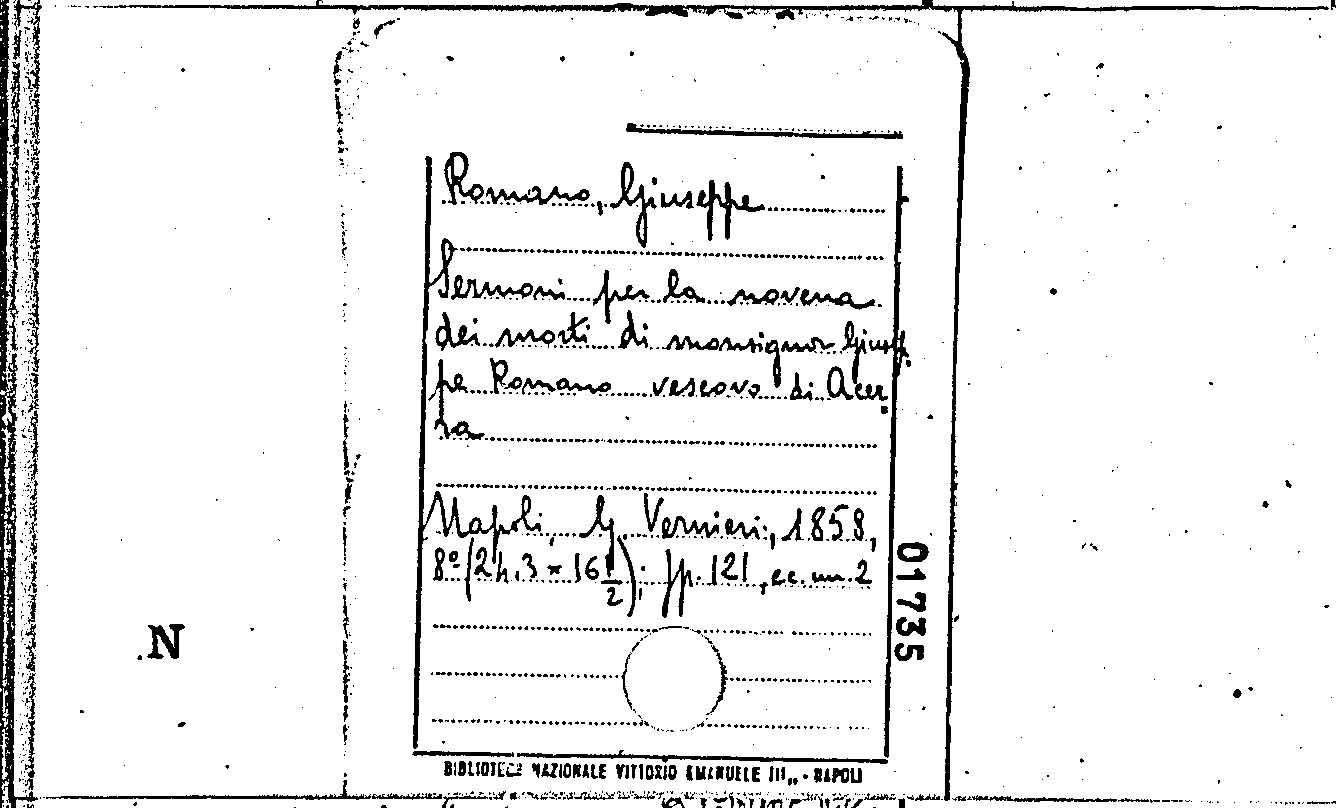 Romano, Giuseppe
Sermoni per la novena
dei morti di monsignor Giusep-
pe Romano vescovo di Acer-
ra
Napoli, G. Vernieri, 1858,
8° (24,3 × 16 1/2); pp. 121, ec. nn. 2
01735
N
BIBLIOTECA NAZIONALE VITTORIO EMANUELE III,, - NAPOLI